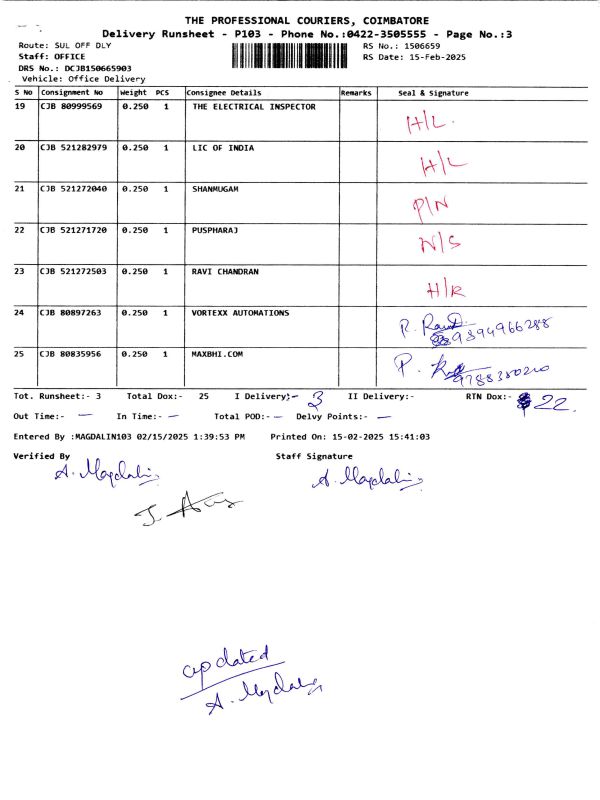 THE PROFESSIONAL COURIERS, COIMBATORE
Delivery Runsheet - P103 - Phone No.:0422-3505555 - Page No.:3
Route: SUL OFF DLY RS No.: 1506659
Staff: OFFICE RS Date: 15-Feb-2025
DRS No.: DCJB150665903
Vehicle: Office Delivery
S No Consignment No Weight PCS Consignee Details Remarks Seal & Signature
19 CJB 80999569 0.250 1 THE ELECTRICAL INSPECTOR H/L.
20 CJB 521282979 0.250 1 LIC OF INDIA H/L
21 CJB 521272040 0.250 1 SHANMUGAM P/N
22 CJB 521271720 0.250 1 PUSPHARAJ N/S
23 CJB 521272503 0.250 1 RAVI CHANDRAN H/R
24 CJB 80897263 0.250 1 VORTEXX AUTOMATIONS R.
9894966288
25 CJB 80835956 0.250 1 MAXBHI.COM P.
9788380200
Tot. Runsheet:- 3 Total Dox:- 25 I Delivery:- 3 II Delivery:- RTN Dox:- 22.
Out Time:- — In Time:- — Total POD:- — Delvy Points:- —
Entered By :MAGDALIN103 02/15/2025 1:39:53 PM Printed On: 15-02-2025 15:41:03
Verified By Staff Signature
A. Magdalin A. Magdalin
updated
A. Magdalin